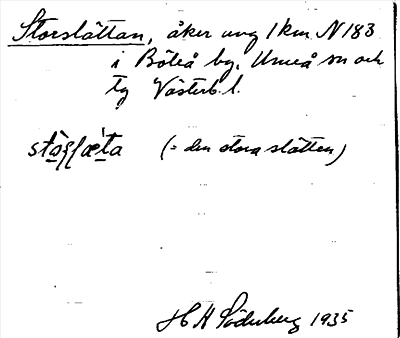 Storslåttan, åker uvg 1 km N 183
i Böleå by, Umeå sn och
tg Västerb. l.
(= den stora slåtten)
H H Söderberg 1935